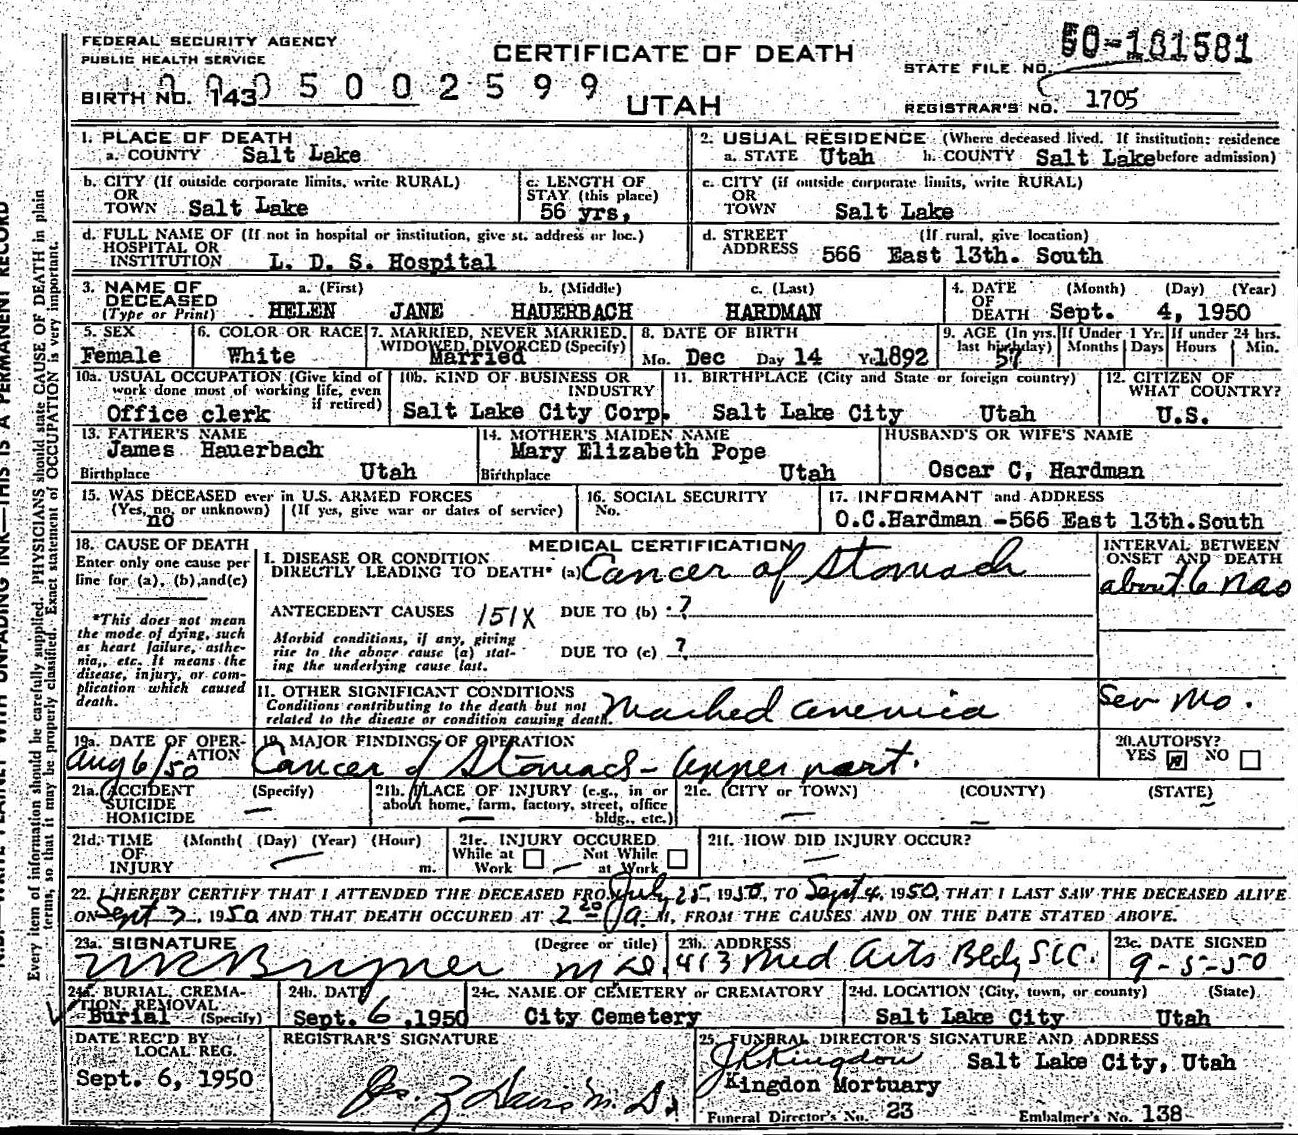 FEDERAL SECURITY AGENCY
PUBLIC HEALTH SERVICE
CERTIFICATE OF DEATH
STATE FILE NO. 50-181581
BIRTH NO. 143 5 0 0 2 5 9 9
UTAH
REGISTRAR'S NO. 1705
1. PLACE OF DEATH
a. COUNTY Salt Lake
2. USUAL RESIDENCE (Where deceased lived. If institution: residence
a. STATE Utah b. COUNTY Salt Lake before admission)
b. CITY (If outside corporate limits, write RURAL)
OR
TOWN Salt Lake
c. LENGTH OF
STAY (this place)
56 yrs,
c. CITY (if outside corporate limits, write RURAL)
OR
TOWN Salt Lake
d. FULL NAME OF (If not in hospital or institution, give st. address or loc.)
HOSPITAL OR
INSTITUTION L. D. S. Hospital
d. STREET (If rural, give location)
ADDRESS 566 East 13th. South
3. NAME OF DECEASED (Type or Print)
a. (First) b. (Middle) c. (Last)
HELEN JANE HAUERBACH HARDMAN
4. DATE OF DEATH (Month) (Day) (Year)
Sept. 4, 1950
5. SEX
Female
6. COLOR OR RACE
White
7. MARRIED, NEVER MARRIED,
WIDOWED, DIVORCED (Specify)
Married
8. DATE OF BIRTH
Mo. Dec Day 14 Yr. 1892
9. AGE (In yrs. last birthday)
57
If Under 1 Yr. Months Days
If under 24 hrs. Hours Min.
10a. USUAL OCCUPATION (Give kind of
work done most of working life, even
if retired)
Office clerk
10b. KIND OF BUSINESS OR
INDUSTRY
Salt Lake City Corp.
11. BIRTHPLACE (City and State or foreign country)
Salt Lake City Utah
12. CITIZEN OF
WHAT COUNTRY?
U.S.
13. FATHER'S NAME
James Hauerbach
Birthplace Utah
14. MOTHER'S MAIDEN NAME
Mary Elizabeth Pope
Birthplace Utah
HUSBAND'S OR WIFE'S NAME
Oscar C, Hardman
15. WAS DECEASED ever in U.S. ARMED FORCES
(Yes, no, or unknown) (If yes, give war or dates of service)
no
16. SOCIAL SECURITY
No.
17. INFORMANT and ADDRESS
O.C.Hardman -566 East 13th.South
18. CAUSE OF DEATH
Enter only one cause per
line for (a), (b),and(c)
*This does not mean
the mode of dying, such
as heart failure, asthe-
nia, etc. It means the
disease, injury, or com-
plication which caused
death.
MEDICAL CERTIFICATION
I. DISEASE OR CONDITION
DIRECTLY LEADING TO DEATH* (a) Cancer of Stomach
ANTECEDENT CAUSES 151X DUE TO (b) ?
Morbid conditions, if any, giving
rise to the above cause (a) stat-
ing the underlying cause last.
DUE TO (c) ?
II. OTHER SIGNIFICANT CONDITIONS
Conditions contributing to the death but not
related to the disease or condition causing death.
Marked anemia
INTERVAL BETWEEN
ONSET AND DEATH
about 6 mos
Sev Mo.
19a. DATE OF OPER-
ATION
Aug 6/50
19. MAJOR FINDINGS OF OPERATION
Cancer of Stomach - upper part.
20. AUTOPSY?
YES NO
21a. ACCIDENT (Specify)
SUICIDE
HOMICIDE —
21b. PLACE OF INJURY (e.g., in or
about home, farm, factory, street, office
bldg., etc.)
—
21c. (CITY or TOWN) (COUNTY) (STATE)
— — —
21d. TIME (Month( (Day) (Year) (Hour)
OF
INJURY — m.
21e. INJURY OCCURED
While at Work — Not While at Work
21f. HOW DID INJURY OCCUR?
—
22. I HEREBY CERTIFY THAT I ATTENDED THE DECEASED FROM July 25, 1950, TO Sept 4, 1950, THAT I LAST SAW THE DECEASED ALIVE
ON Sept 3, 1950 AND THAT DEATH OCCURED AT 2 20 a M, FROM THE CAUSES AND ON THE DATE STATED ABOVE.
23a. SIGNATURE (Degree or title)
M.D.
23b. ADDRESS
413 Med Arts Bldg SLC.
23c. DATE SIGNED
9-5-50
24a. BURIAL, CREMA-
TION, REMOVAL
Burial (Specify)
24b. DATE
Sept. 6, 1950
24c. NAME OF CEMETERY or CREMATORY
City Cemetery
24d. LOCATION (City, town, or county) (State)
Salt Lake City Utah
DATE REC'D BY
LOCAL REG.
Sept. 6, 1950
REGISTRAR'S SIGNATURE
M.D.
25. FUNERAL DIRECTOR'S SIGNATURE AND ADDRESS
Kingdon Salt Lake City, Utah
Kingdon Mortuary
Funeral Director's No. 23 Embalmer's No. 138
Every item of information should be carefully supplied. PHYSICIANS should state CAUSE OF DEATH in plain
terms, so that it may be properly classified. Exact statement of OCCUPATION is very important.
UNFADING INK—THIS IS A PERMANENT RECORD